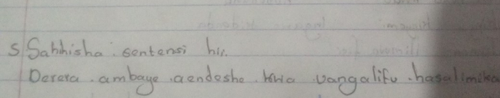 S Sahhisha sentensi hii.
Derera ambaye aendeshe kwa uangalifu hasalimika